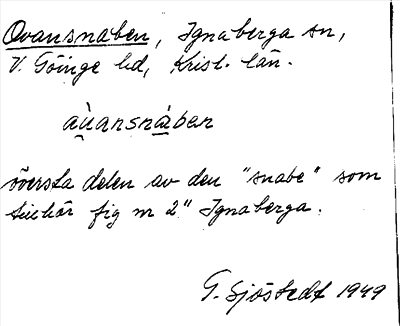 Ovansnaben, Ignaberga sn,
V. Göinge hd, Krist. län.
a̱ùansnàbən
översta delen av den "snabe" som
tillhör fig nr 2" Ignaberga.
G. Sjöstedt 1949